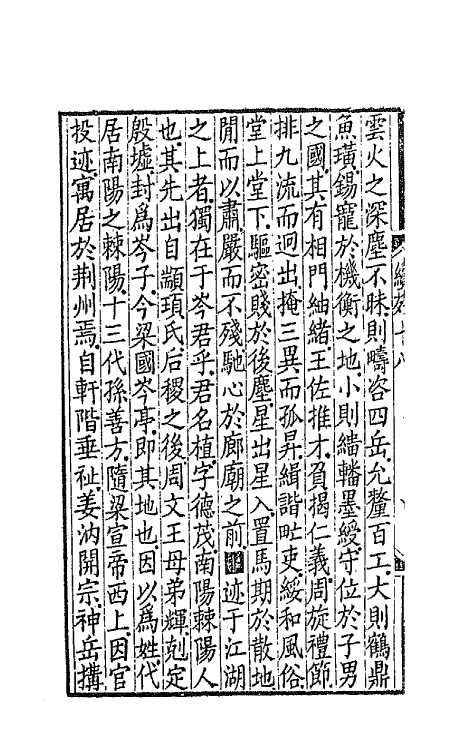 雲火之深塵不昧則疇咨四岳允釐百工大則鶴鼎
魚璜錫寵於機衡之地小則繡轓墨綬守位於子男
之國其有相門紬緒王佐推才負揭仁義周旋禮節
排九流而迥出掩三異而孤昇緝諧甿吏綏和風俗
堂上堂下驅密賤於後塵星出星入置馬期於散地
閒而以肅嚴而不殘馳心於廊廟之前迹于江湖
之上者獨在于岑君乎君名植字德茂南陽棘陽人
也其先出自顓頊氏后稷之後周文王母弟輝剋定
殷墟封爲岑子今梁國岑亭即其地也因以爲姓代
居南陽之棘陽十三代孫善方隨梁宣帝西上因官
投迹寓居於荆州焉自軒階垂祉姜汭開宗神岳搆